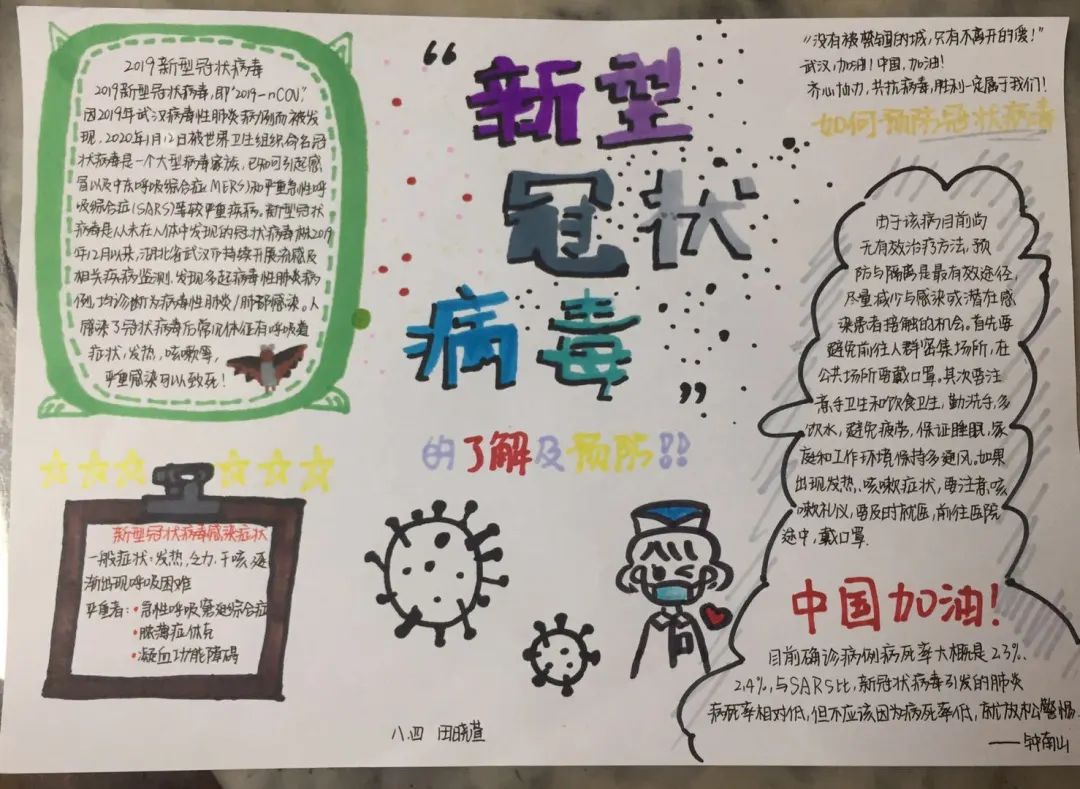 2019新型冠状病毒
2019新型冠状病毒,即"2019-nCOV,"
因2019年武汉病毒性肺炎病例而被发
现,2020年1月12日被世界卫生组织命名冠
状病毒是一个大型病毒家族,已知可引起感
冒以及中东呼吸综合症MERS)和严重急性呼
吸综合症(SARS)等较严重疾病。新型冠状
病毒是从未在人体中发现的冠状病毒株2019
年12月以来,湖北省武汉市持续开展流感及
相关疾病监测,发现多起病毒性肺炎病
例,均诊断为病毒性肺炎/肺部感染。人
感染了冠状病毒后常见体征有呼吸道
症状,发热,咳嗽等,
严重感染可以致死!
“新型
冠状
病毒”
的了解及预防!!
"没有被禁锢的城,只有不离开的爱!"
武汉,加油!中国,加油!
齐心协力,共抗病毒,胜利一定属于我们!
如何预防冠状病毒
由于该病目前尚
无有效治疗方法,预
防与隔离是最有效途径,
尽量减少与感染或潜在感
染患者接触的机会。首先要
避免前往人群密集场所,在
公共场所要戴口罩,其次要注
意手卫生和饮食卫生,勤洗手,多
饮水,避免疲劳,保证睡眠,家
庭和工作环境保持多通风。如果
出现发热、咳嗽症状,要注意咳
嗽礼仪,要及时就医,前往医院
途中,戴口罩.
新型冠状病毒感染症状
一般症状:发热,乏力,干咳,逐
渐出现呼吸困难
严重者:·急性呼吸窘迫综合症
·脓毒症休克
·凝血功能障碍
中国加油!
目前确诊病例病死率大概是2.3%、
2.4%,与SARS比,新冠状病毒引发的肺炎
病死率相对低,但不应该因为病死率低,就放松警惕.
——钟南山
八.四 田晓萱